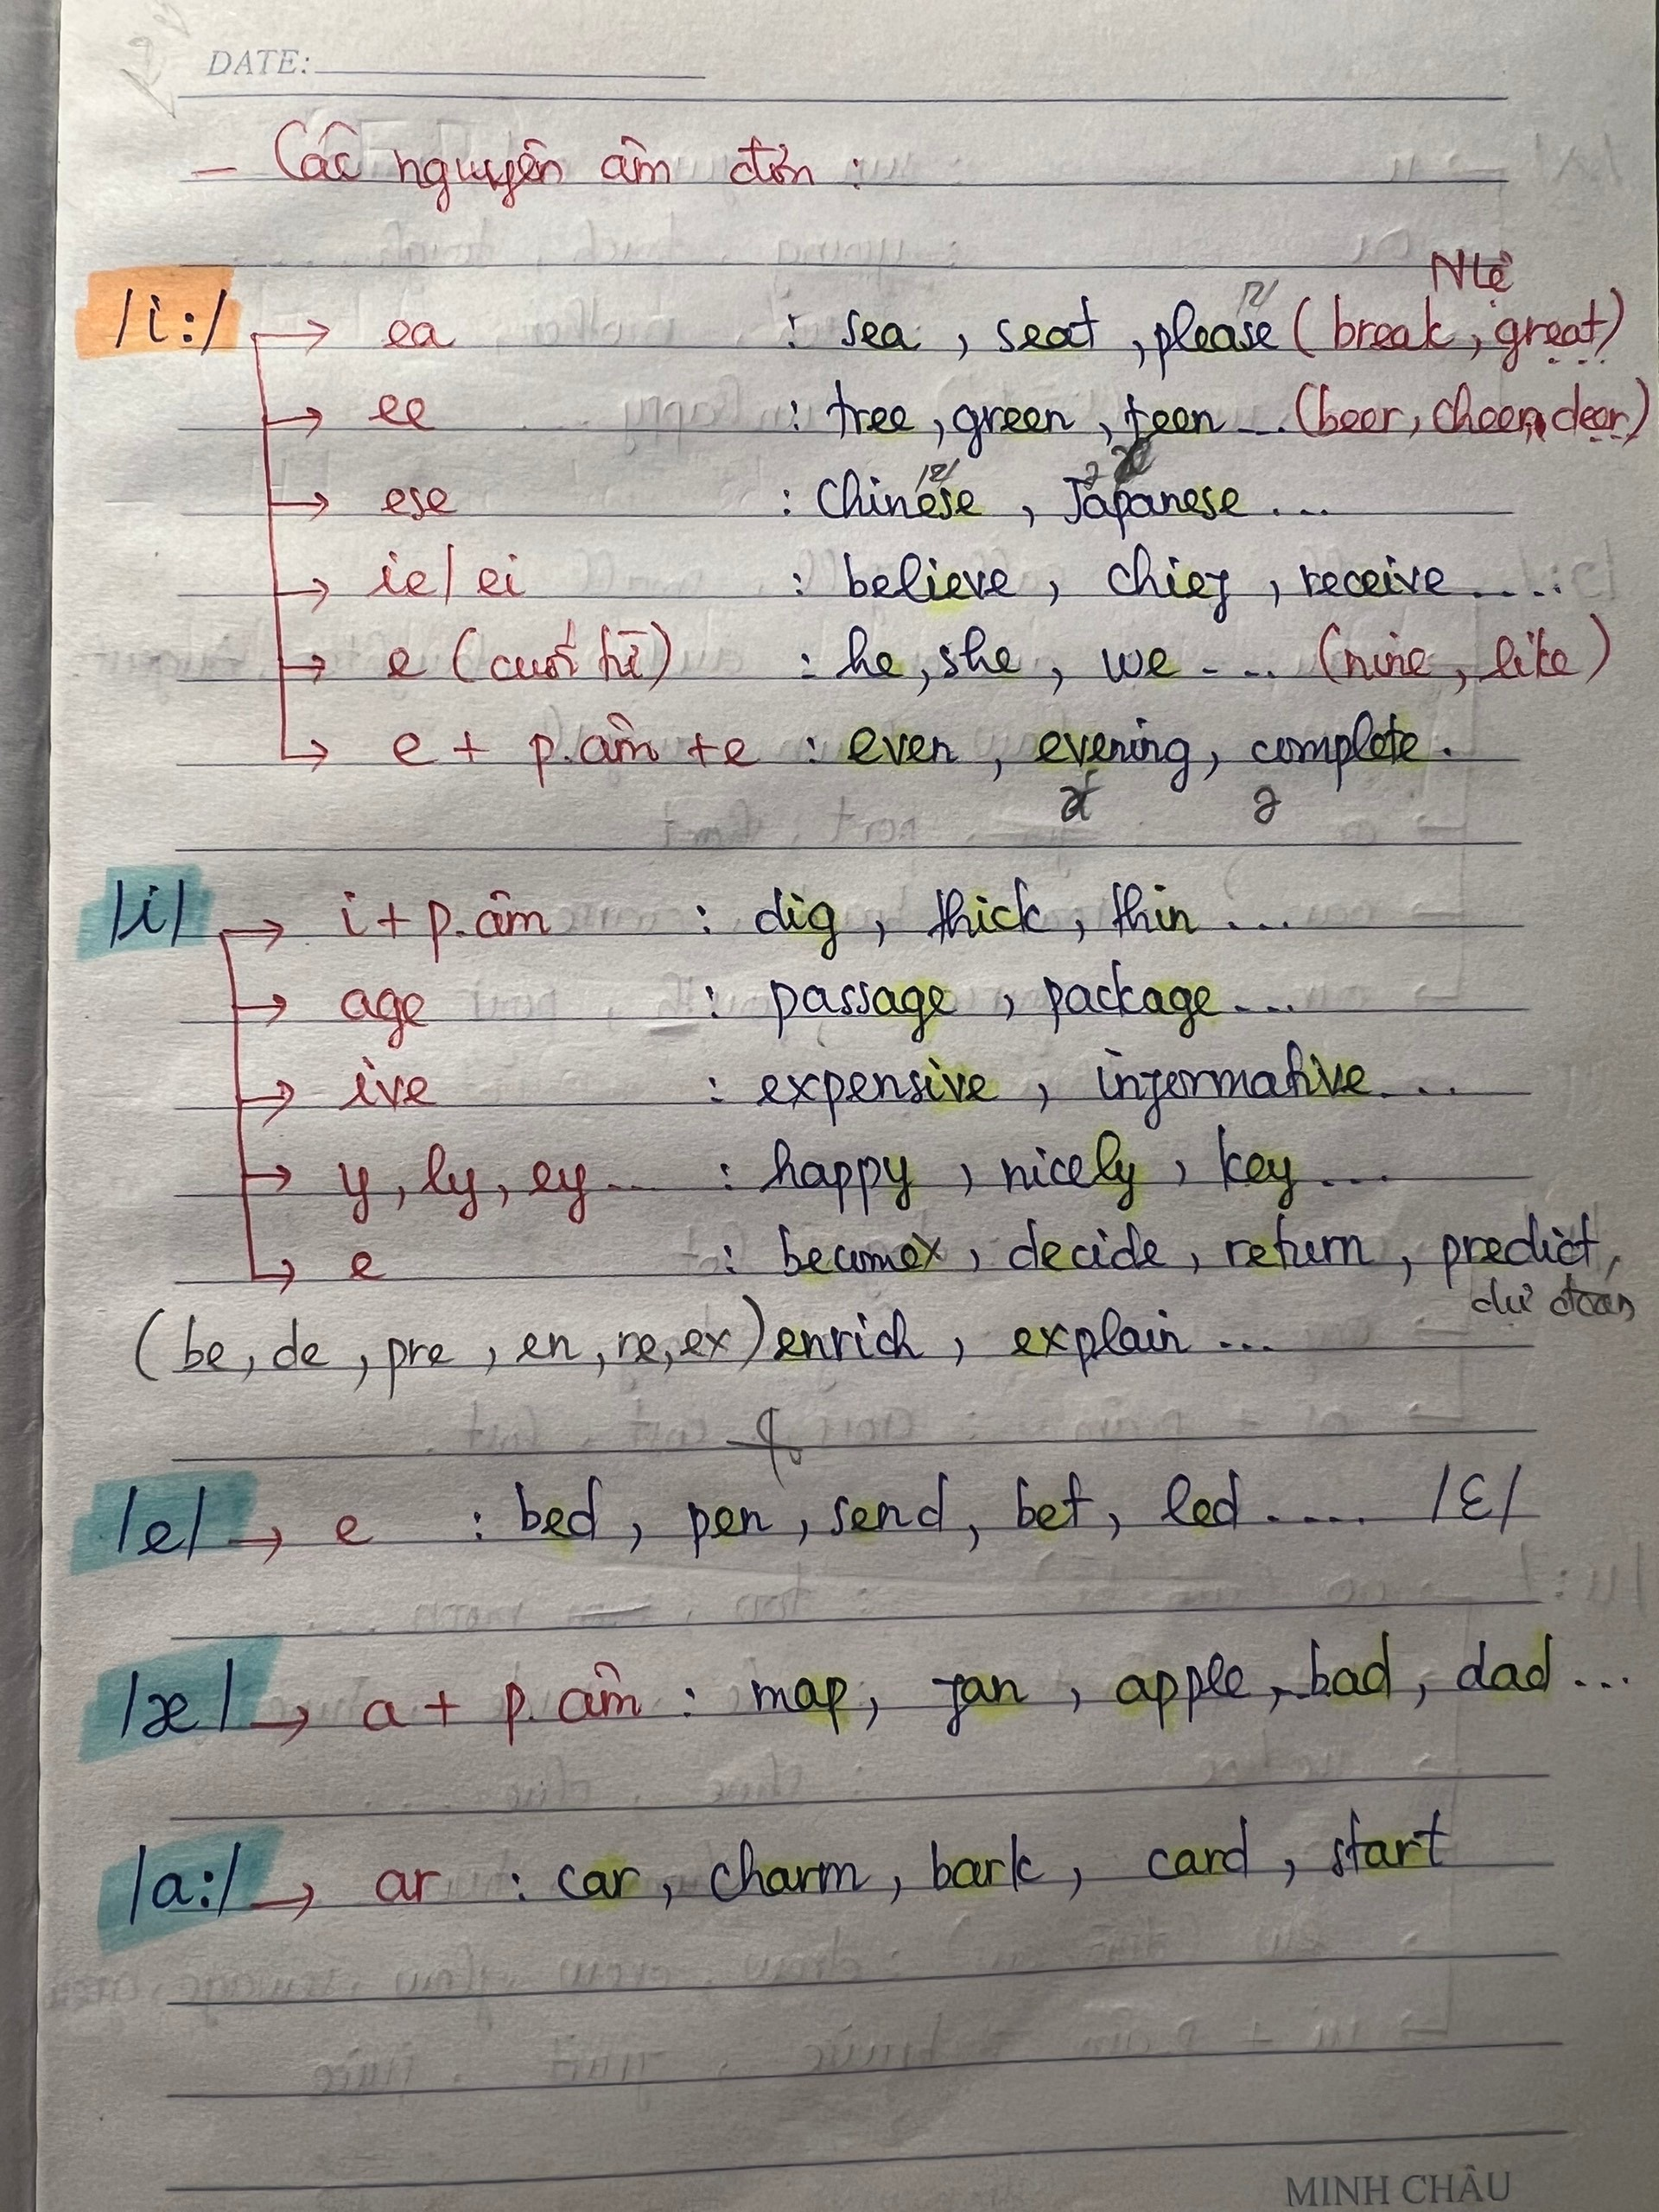 DATE:
- Các nguyên âm đơn :
Nlệ
/i:/ → ea : sea , seat , please /z/ (break , great)
→ ee : tree , green , teen ... (beer, cheer, deer)
→ ese : Chinese /z/ , Japanese ə ...
→ ie/ei : believe , chief , receive ....
→ e (cuối từ) : he , she , we ... (nine , like)
→ e + p.âm + e : even , evening , complete .
ə
/i/ → i + p.âm : dig , thick , thin ...
→ age : passage , package ...
→ ive : expensive , informative ...
→ y , ly , ey ... : happy , nicely , key ...
→ e : become x , decide , return , predict ,
dự đoán
(be, de , pre , en , re, ex) enrich , explain ...
/e/ → e : bed , pen , send , bet , led .... /ɛ/
/æ/ → a + p.âm : map , fan , apple , bad , dad ...
/a:/ → ar : car , charm , bark , card , start
MINH CHÂU